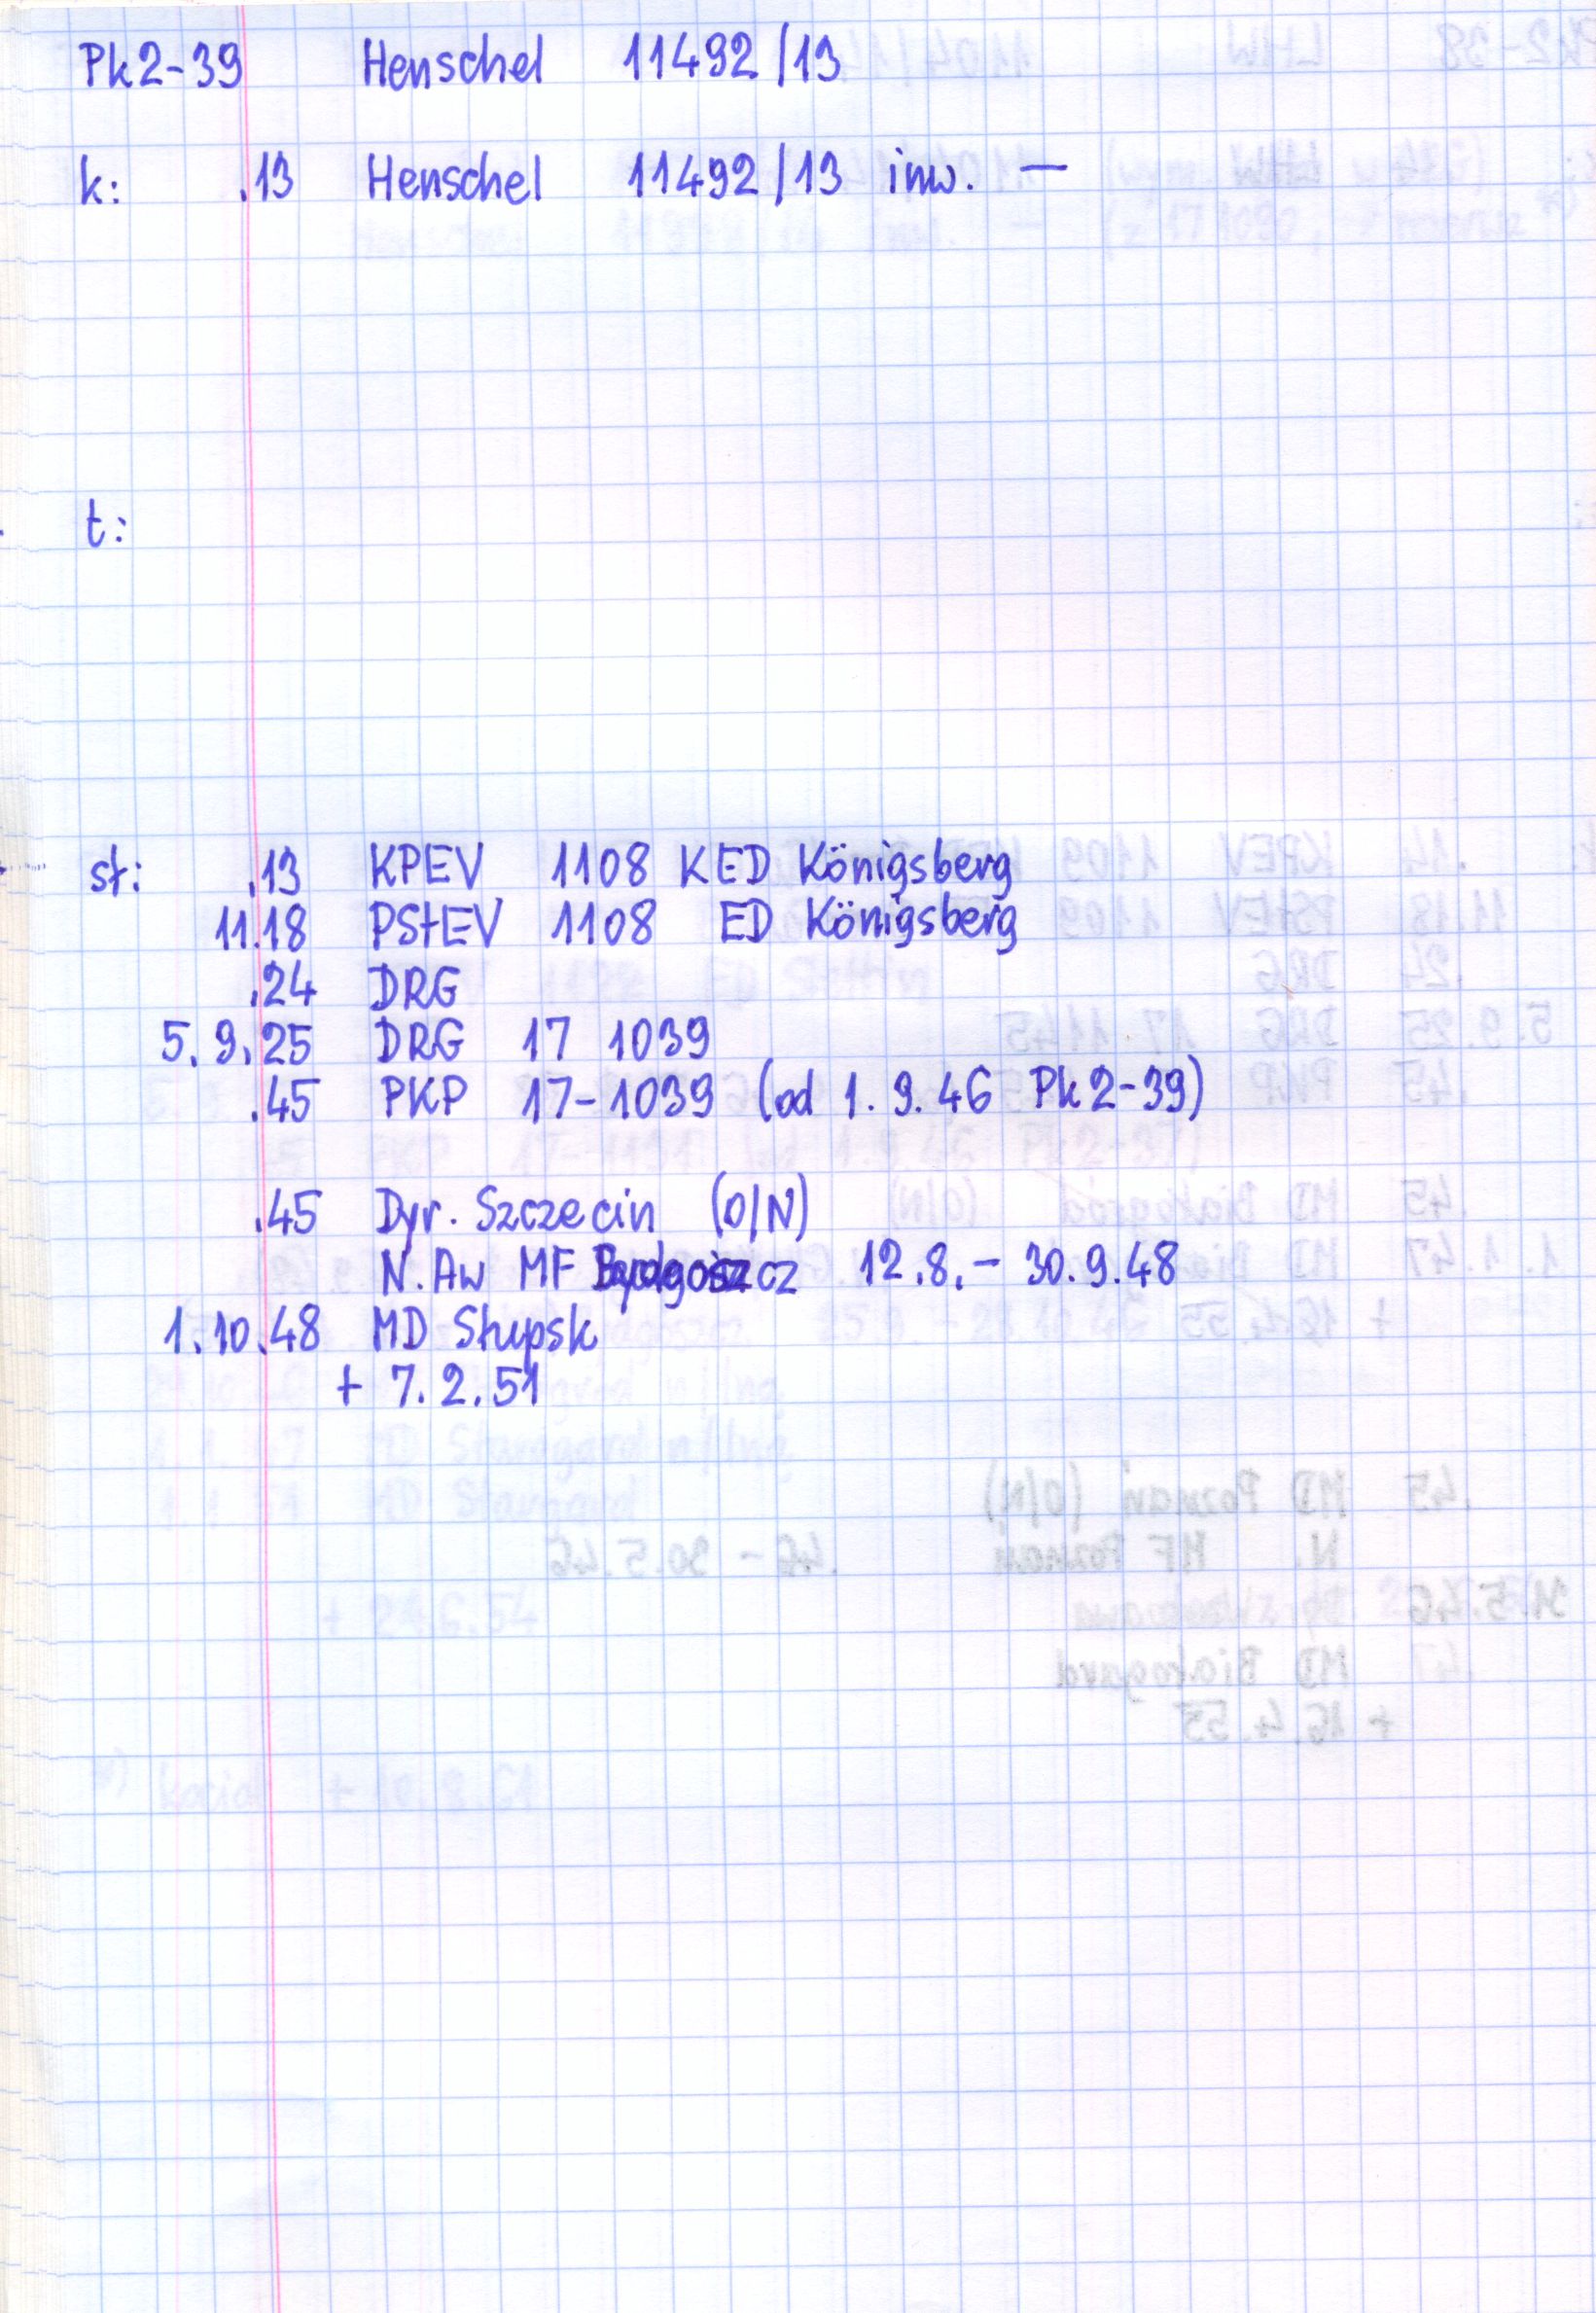 Pk2-39 Henschel 11492/13
k: .13 Henschel 11492/13 inw. —
t:
st: .13 KPEV 1108 KED Königsberg
11.18 PStEV 1108 ED Königsberg
.24 DRG
5.9.25 DRG 17 1039
.45 PKP 17-1039 (od 1.9.46 Pk2-39)
.45 Dyr. Szczecin (O/N)
N. Aw MF Bydgoszcz 12.8.- 30.9.48
1.10.48 MD Słupsk
+ 7.2.51